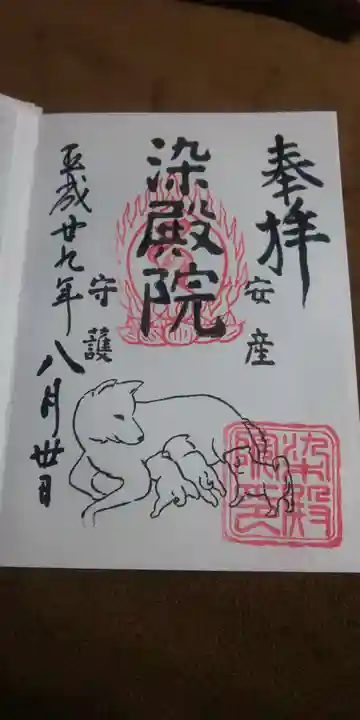 奉拝
安産
染殿院
守護
平成廿九年八月卅日
染殿